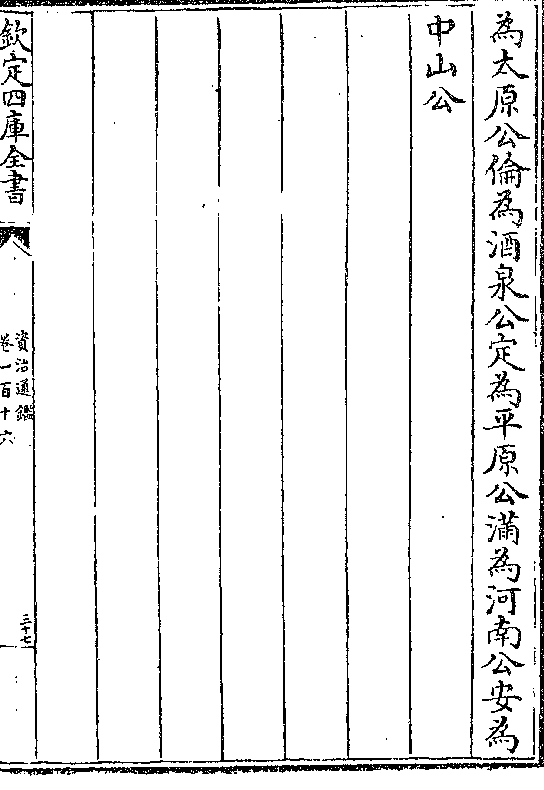 為太原公倫為酒泉公定為平原公滿為河南公安為
中山公
欽定四庫全書
資治通鑑
卷一百十六
三十七